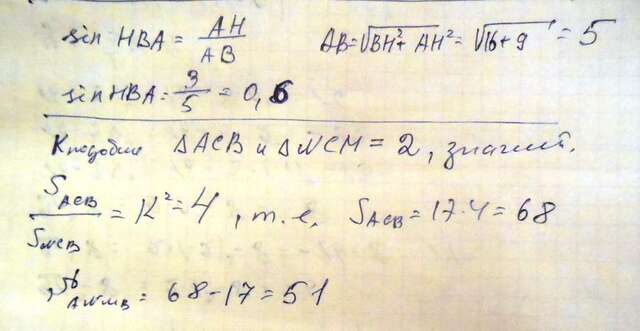 sin HBA = AH/AB    AB = √BH² + AH² = √16 + 9 = 5
sin HBA = 3/5 = 0,6
K подобие △ACB и △NCM = 2, значит.
S_ACB/S_NCB = K² = 4, т.е. S_ACB = 17·4 = 68
S_ANMB = 68 - 17 = 51